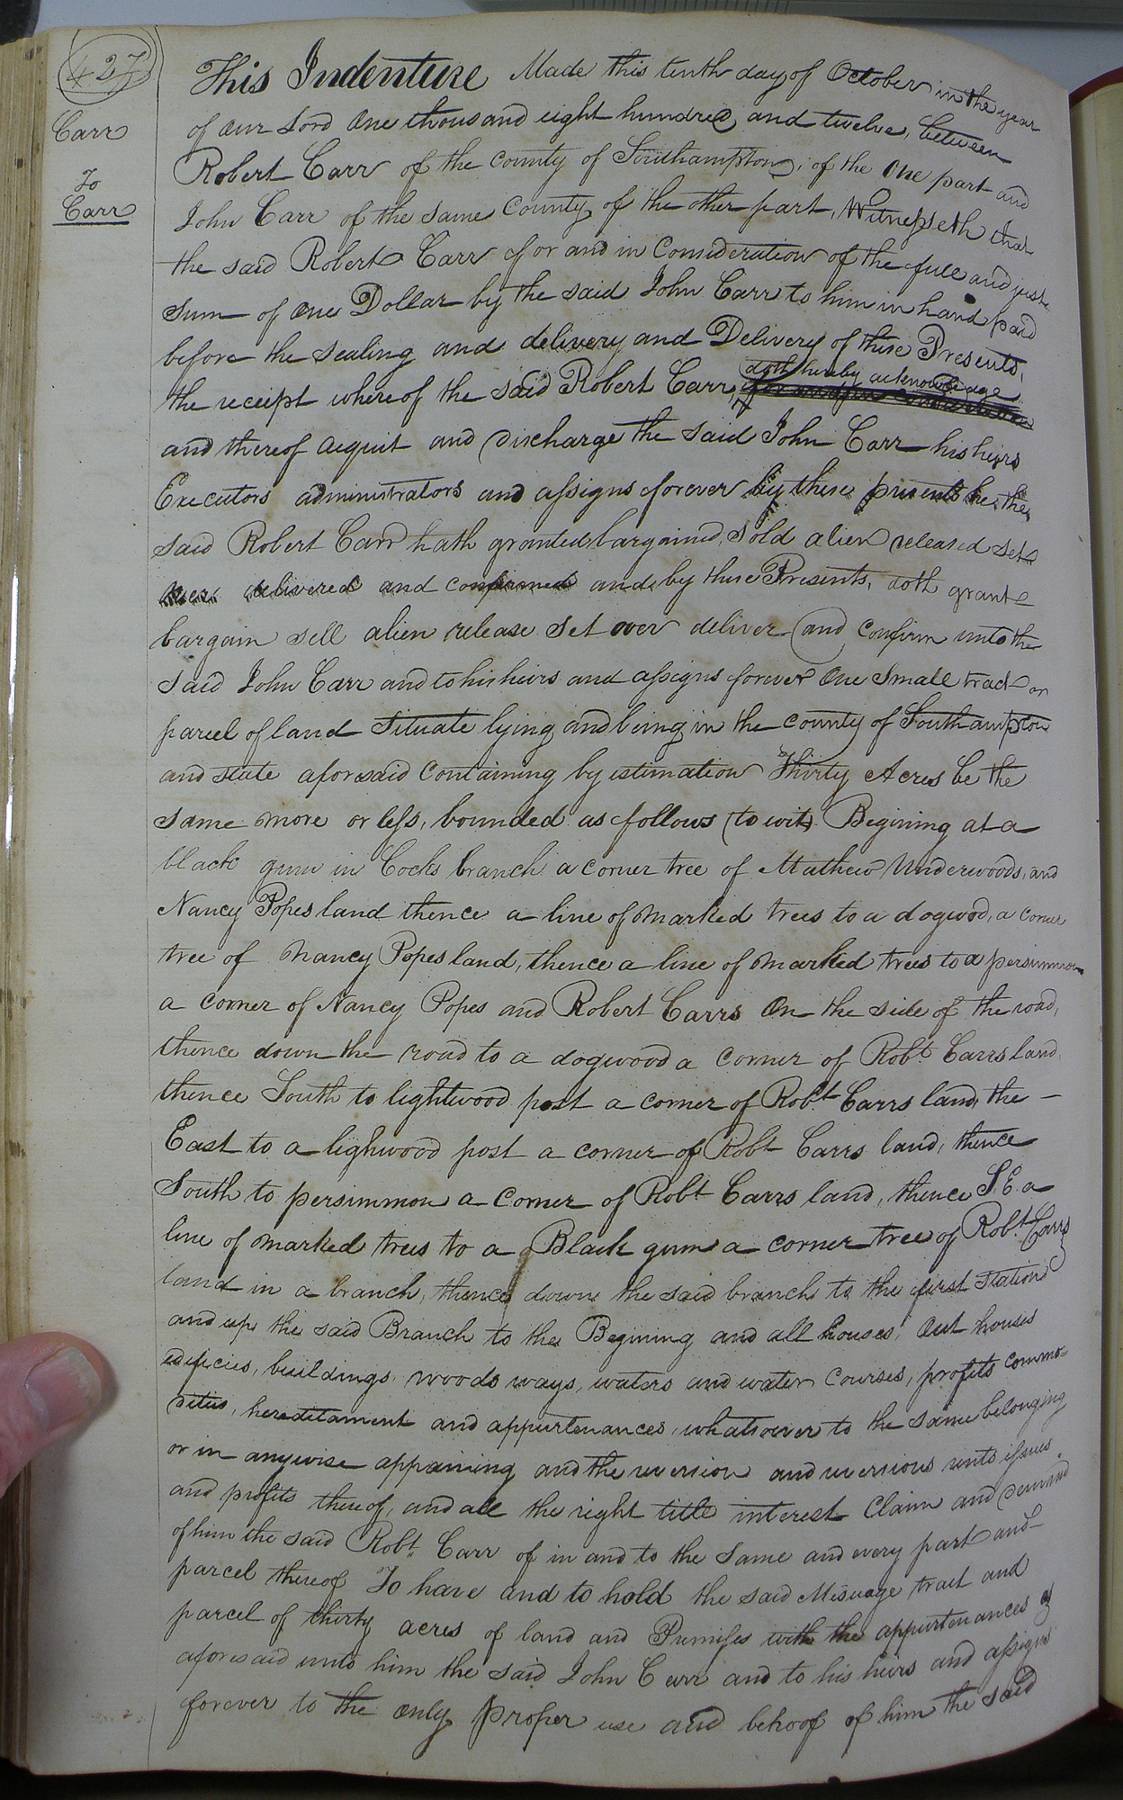 427
Carr
To
Carr
This Indenture Made this tenth day of October in the year
of our Lord One thousand eight hundred and twelve, between
Robert Carr of the county of Southampton, of the One part and
John Carr of the same County of the other part, Witnesseth that
the said Robert Carr for and in Consideration of the full and just
Sum of One Dollar by the said John Carr to him in hand paid
before the sealing and delivery and Delivery of these Presents,
doth hereby acknowledge
the receipt whereof the said Robert Carr,
and thereof acquit and discharge the said John Carr his heirs
Executors administrators and assigns forever by these presents he the
said Robert Carr hath granted bargained, Sold alien released set
over delivered and confirmed and by these Presents, doth grant
bargain sell alien release Set over deliver and confirm unto the
said John Carr and to his heirs and assigns forever One Small tract or
parcel of land Situate lying and being in the county of Southampton
and state aforesaid Containing by estimation Thirty Acres be the
same more or less, bounded as follows (to wit) Begining at a
black gum in Cocks branch a corner tree of Mathew Underwoods, and
Nancy Popes land thence a line of marked trees to a dogwod, a corner
tree of Nancy Popes land, thence a line of marked trees to a persimmon
a corner of Nancy Popes and Robert Carrs On the side of the road,
thence down the road to a dogwood a corner of Robt Carrs land,
thence South to lightwood post a corner of Robt Carrs land, the
East to a lighwood post a corner of Robt Carrs land, thence
South to persimmon a corner of Robt Carrs land, thence S.E. a
line of marked trees to a Black gum a corner tree of Robt Carrs
land in a branch, thence down the said branch to the first Station
and up the said Branch to the Begining and all houses, Out houses
edificies, buildings, woods ways, waters and water Courses, profits commo-
dities, hereditament and appurtenances, whatsoever to the same belonging
or in anywise appaining and the reversion and reversions unto issues
and profits thereof, and all the right title interest Claim and demand
of him the said Robt Carr of in and to the Same and every part and
parcel thereof To have and to hold the said Misuage tract and
parcel of thirty acres of land and Premises with the appurtenances
aforesaid unto him the said John Carr and to his heirs and assigns
forever to the only proper use and behoof of him the said